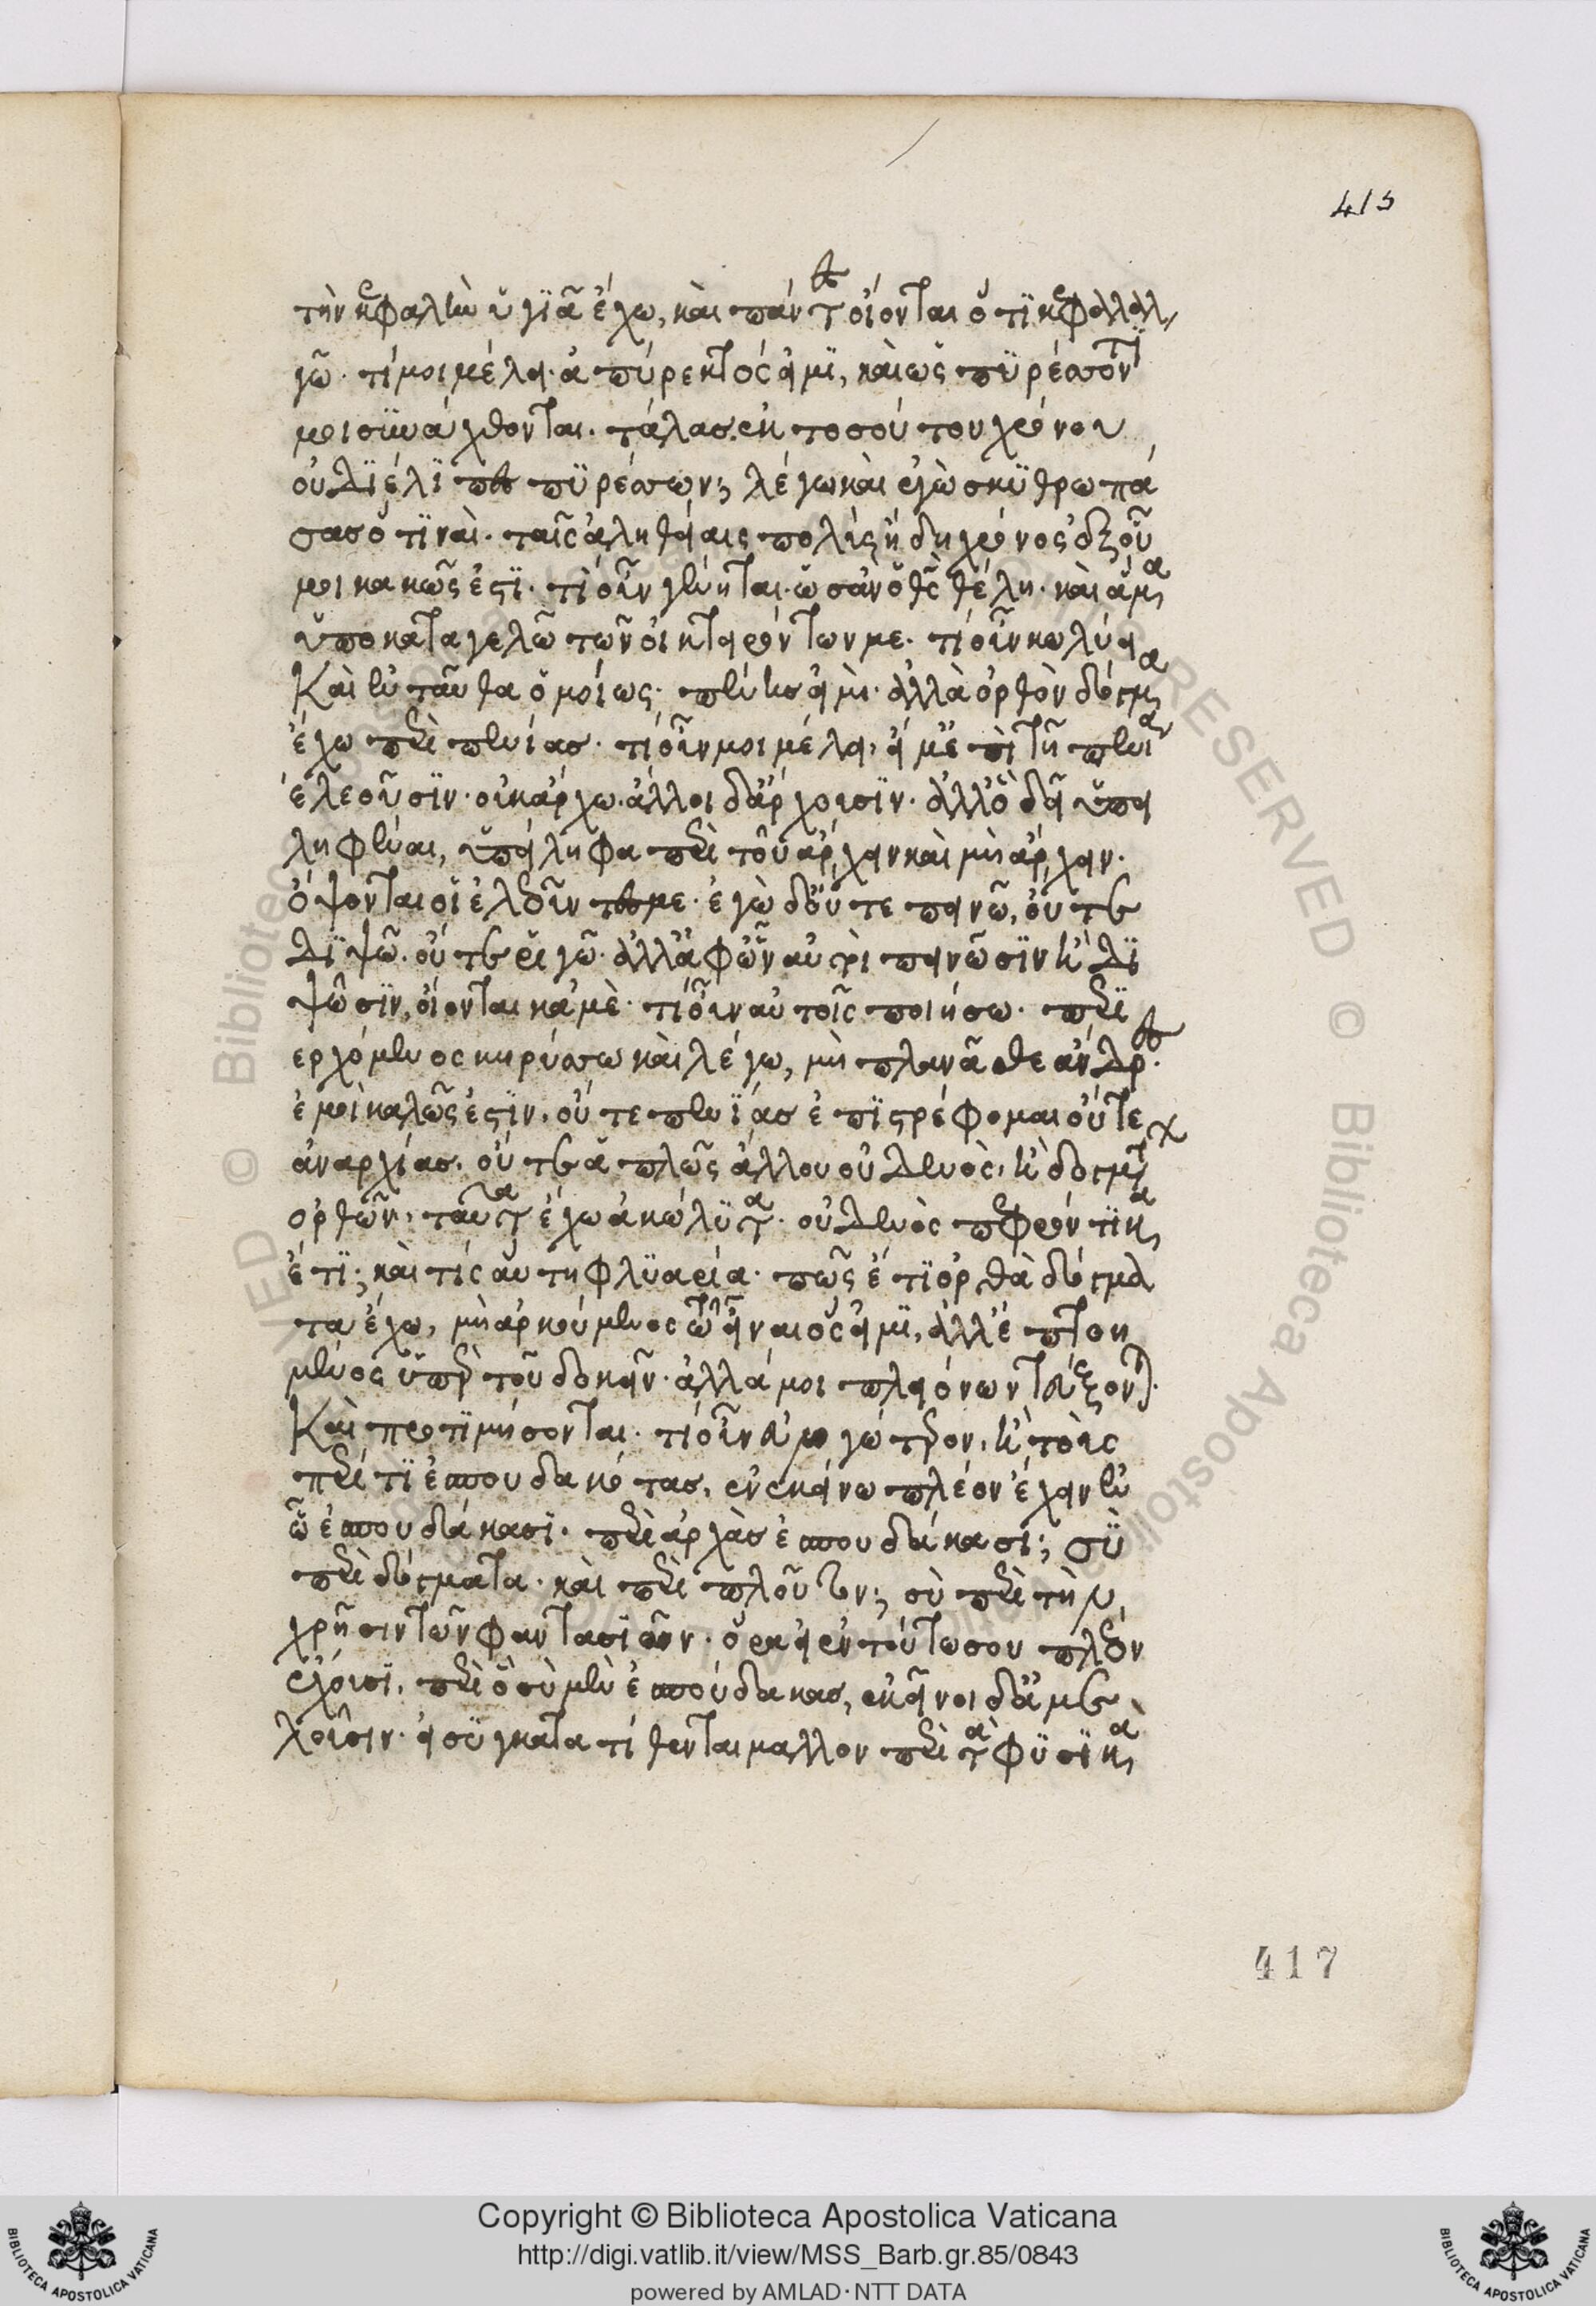 413
τὴν κεφαλὴν ὑγιᾶ ἔχω, καὶ πάντες οἴονται ὅτι κεφαλαλ
γῶ. τί μοι μέλει. ἀπύρεκτός εἰμι, καὶ ὡς πυρέσσοντί
μοι συνάχθονται. τάλας. ἐκ τοσούτου χρόνου
οὐ διέλιπες πυρέσσων; λέγω καὶ ἐγὼ σκυθρωπά
σας ὅτι ναί. ταῖς ἀληθείαις πολὺς ἤδη χρόνος ἐξ οὗ
μοι κακῶς ἐστι. τί οὖν γένηται. ὡς ἂν ὁ θεὸς θέλῃ. καὶ ἅμα
ὑποκαταγελῶ τῶν οἰκτειρόντων με. τί οὖν κωλύει
Καὶ ἐνταῦθα ὁμοίως. πένης εἰμί. ἀλλὰ ὀρθὸν δόγμα
ἔχω περὶ πενίας. τί οὖν μοι μέλει, εἴ με ἐπὶ τῇ πενίᾳ
ἐλεοῦσιν. οὐκ ἄρχω. ἄλλοι δ' ἄρχουσιν. ἀλλ' ὃ δεῖ ὑπει
ληφέναι, ὑπείληφα περὶ τοῦ ἄρχειν καὶ μὴ ἄρχειν.
ὄψονται οἱ ἐλεοῦντές με. ἐγὼ δ' οὔτε πεινῶ, οὔτε
διψῶ. οὔτε ῥιγῶ. ἀλλ' ἀφ' ὧν αὐτοὶ πεινῶσιν ἢ δι
ψῶσιν, οἴονται κἀμέ. τί οὖν αὐτοῖς ποιήσω. περι
ερχόμενος κηρύσσω καὶ λέγω, μὴ πλανᾶσθε ἄνδρες.
ἐμοὶ καλῶς ἐστιν. οὔτε πενίας ἐπιστρέφομαι οὔτε
ἀναρχίας. οὔτε ἁπλῶς ἄλλου οὐδενὸς, ἢ δογμάτων
ὀρθῶν. ταῦτα ἔχω ἀκώλυτα. οὐδενὸς πεφρόντικα
ἔτι; καὶ τίς αὕτη φλυαρία. πῶς ἔτι ὀρθὰ δόγμα
τα ἔχω, μὴ ἀρκούμενος τῷ εἶναι ὅς εἰμι, ἀλλ' ἐπτοη
μένος ὑπὲρ τοῦ δοκεῖν. ἀλλά μοι πλειόνων τεύξονται.
Καὶ προτιμήσονται. τί οὖν εὐλογώτερον, ἢ τοὺς
περί τι ἐσπουδακότας, ἐν ἐκείνῳ πλέον ἔχειν ἐν
ᾧ ἐσπουδάκασι. περὶ ἀρχὰς ἐσπουδάκασι; σὺ
περὶ δόγματα. καὶ περὶ πλοῦτον; σὺ περὶ τὴν
χρῆσιν τῶν φαντασιῶν. ὅρα εἰ ἐν τούτῳ σου πλέον
ἔχουσι, περὶ ὃ σὺ μὲν ἐσπούδακας, ἐκεῖνοι δ' ἀμε
λοῦσιν. εἰ συγκατατίθενται μᾶλλον περὶ τὰ φυσικὰ
417
Copyright © Biblioteca Apostolica Vaticana
http://digi.vatlib.it/view/MSS_Barb.gr.85/0843
powered by AMLAD·NTT DATA